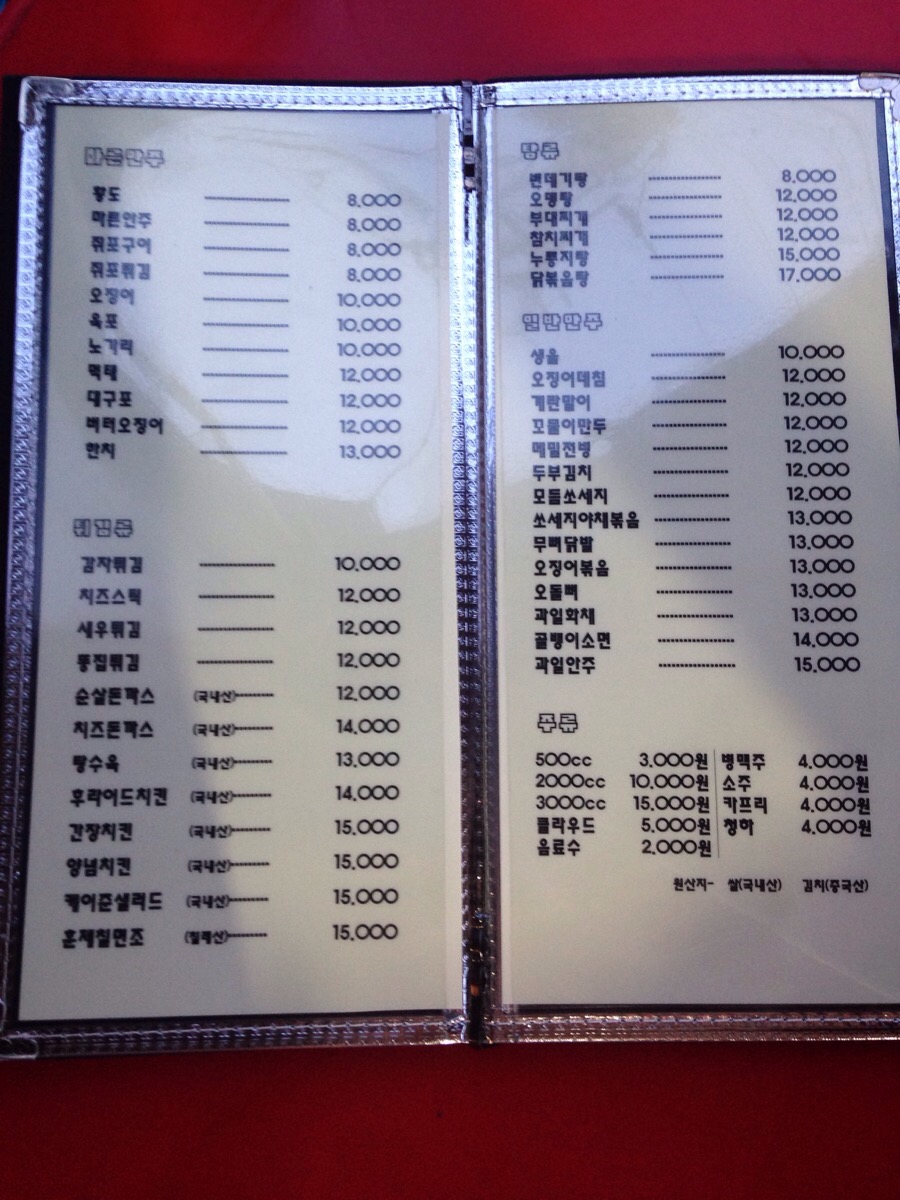 마른안주
황도 8,000
마른안주 8,000
쥐포구이 8,000
쥐포튀김 8,000
오징어 10,000
육포 10,000
노가리 10,000
먹태 12,000
대구포 12,000
버터오징어 12,000
한치 13,000
튀김류
감자튀김 10,000
치즈스틱 12,000
새우튀김 12,000
똥집튀김 12,000
순살돈까스 (국내산) 12,000
치즈돈까스 (국내산) 14,000
탕수육 (국내산) 13,000
후라이드치킨 (국내산) 14,000
간장치킨 (국내산) 15,000
양념치킨 (국내산) 15,000
케이준샐러드 (국내산) 15,000
훈제칠면조 (칠레산) 15,000
탕류
번데기탕 8,000
오뎅탕 12,000
부대찌개 12,000
참치찌개 12,000
누룽지탕 15,000
닭볶음탕 17,000
일반안주
생율 10,000
오징어데침 12,000
계란말이 12,000
꼬물이만두 12,000
메밀전병 12,000
두부김치 12,000
모듬쏘세지 12,000
쏘세지야채볶음 13,000
무뼈닭발 13,000
오징어볶음 13,000
오돌뼈 13,000
과일화채 13,000
골뱅이소면 14,000
과일안주 15,000
주류
500cc 3,000원 병맥주 4,000원
2000cc 10,000원 소주 4,000원
3000cc 15,000원 카프리 4,000원
클라우드 5,000원 청하 4,000원
음료수 2,000원
원산지- 쌀(국내산) 김치(중국산)